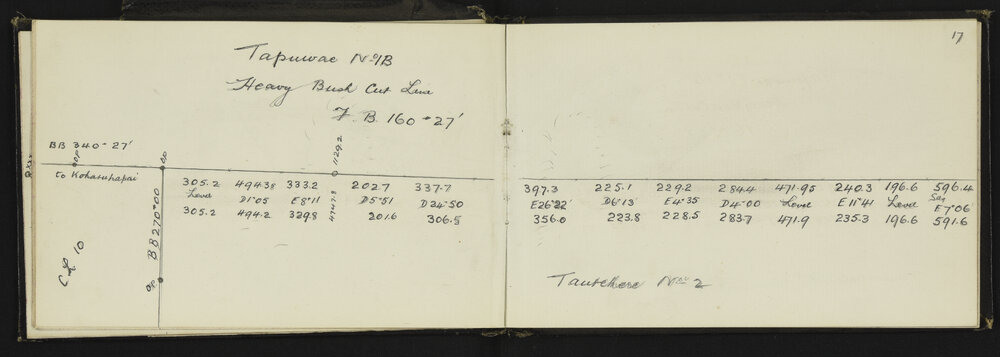 17
Tapuwae No 1B
Heavy Bush Cut Line
F. B 160°27'
BB 340°27'
to Koharuhapai
OP
OP
1129.2
4747.9
BB 270°00
OP
305.2 494.38 333.2 202.7 337.7 397.3 225.1 229.2 284.4 471.95 240.3 196.6 596.4
Level D1°05 E8°11 D5°51 D24°50 E26°22' D6°13 E4°35 D4°00 Level E11°41 Level Say E7°06'
305.2 494.2 329.8 201.6 306.5 356.0 223.8 228.5 283.7 471.9 235.3 196.6 591.6
10
No 2